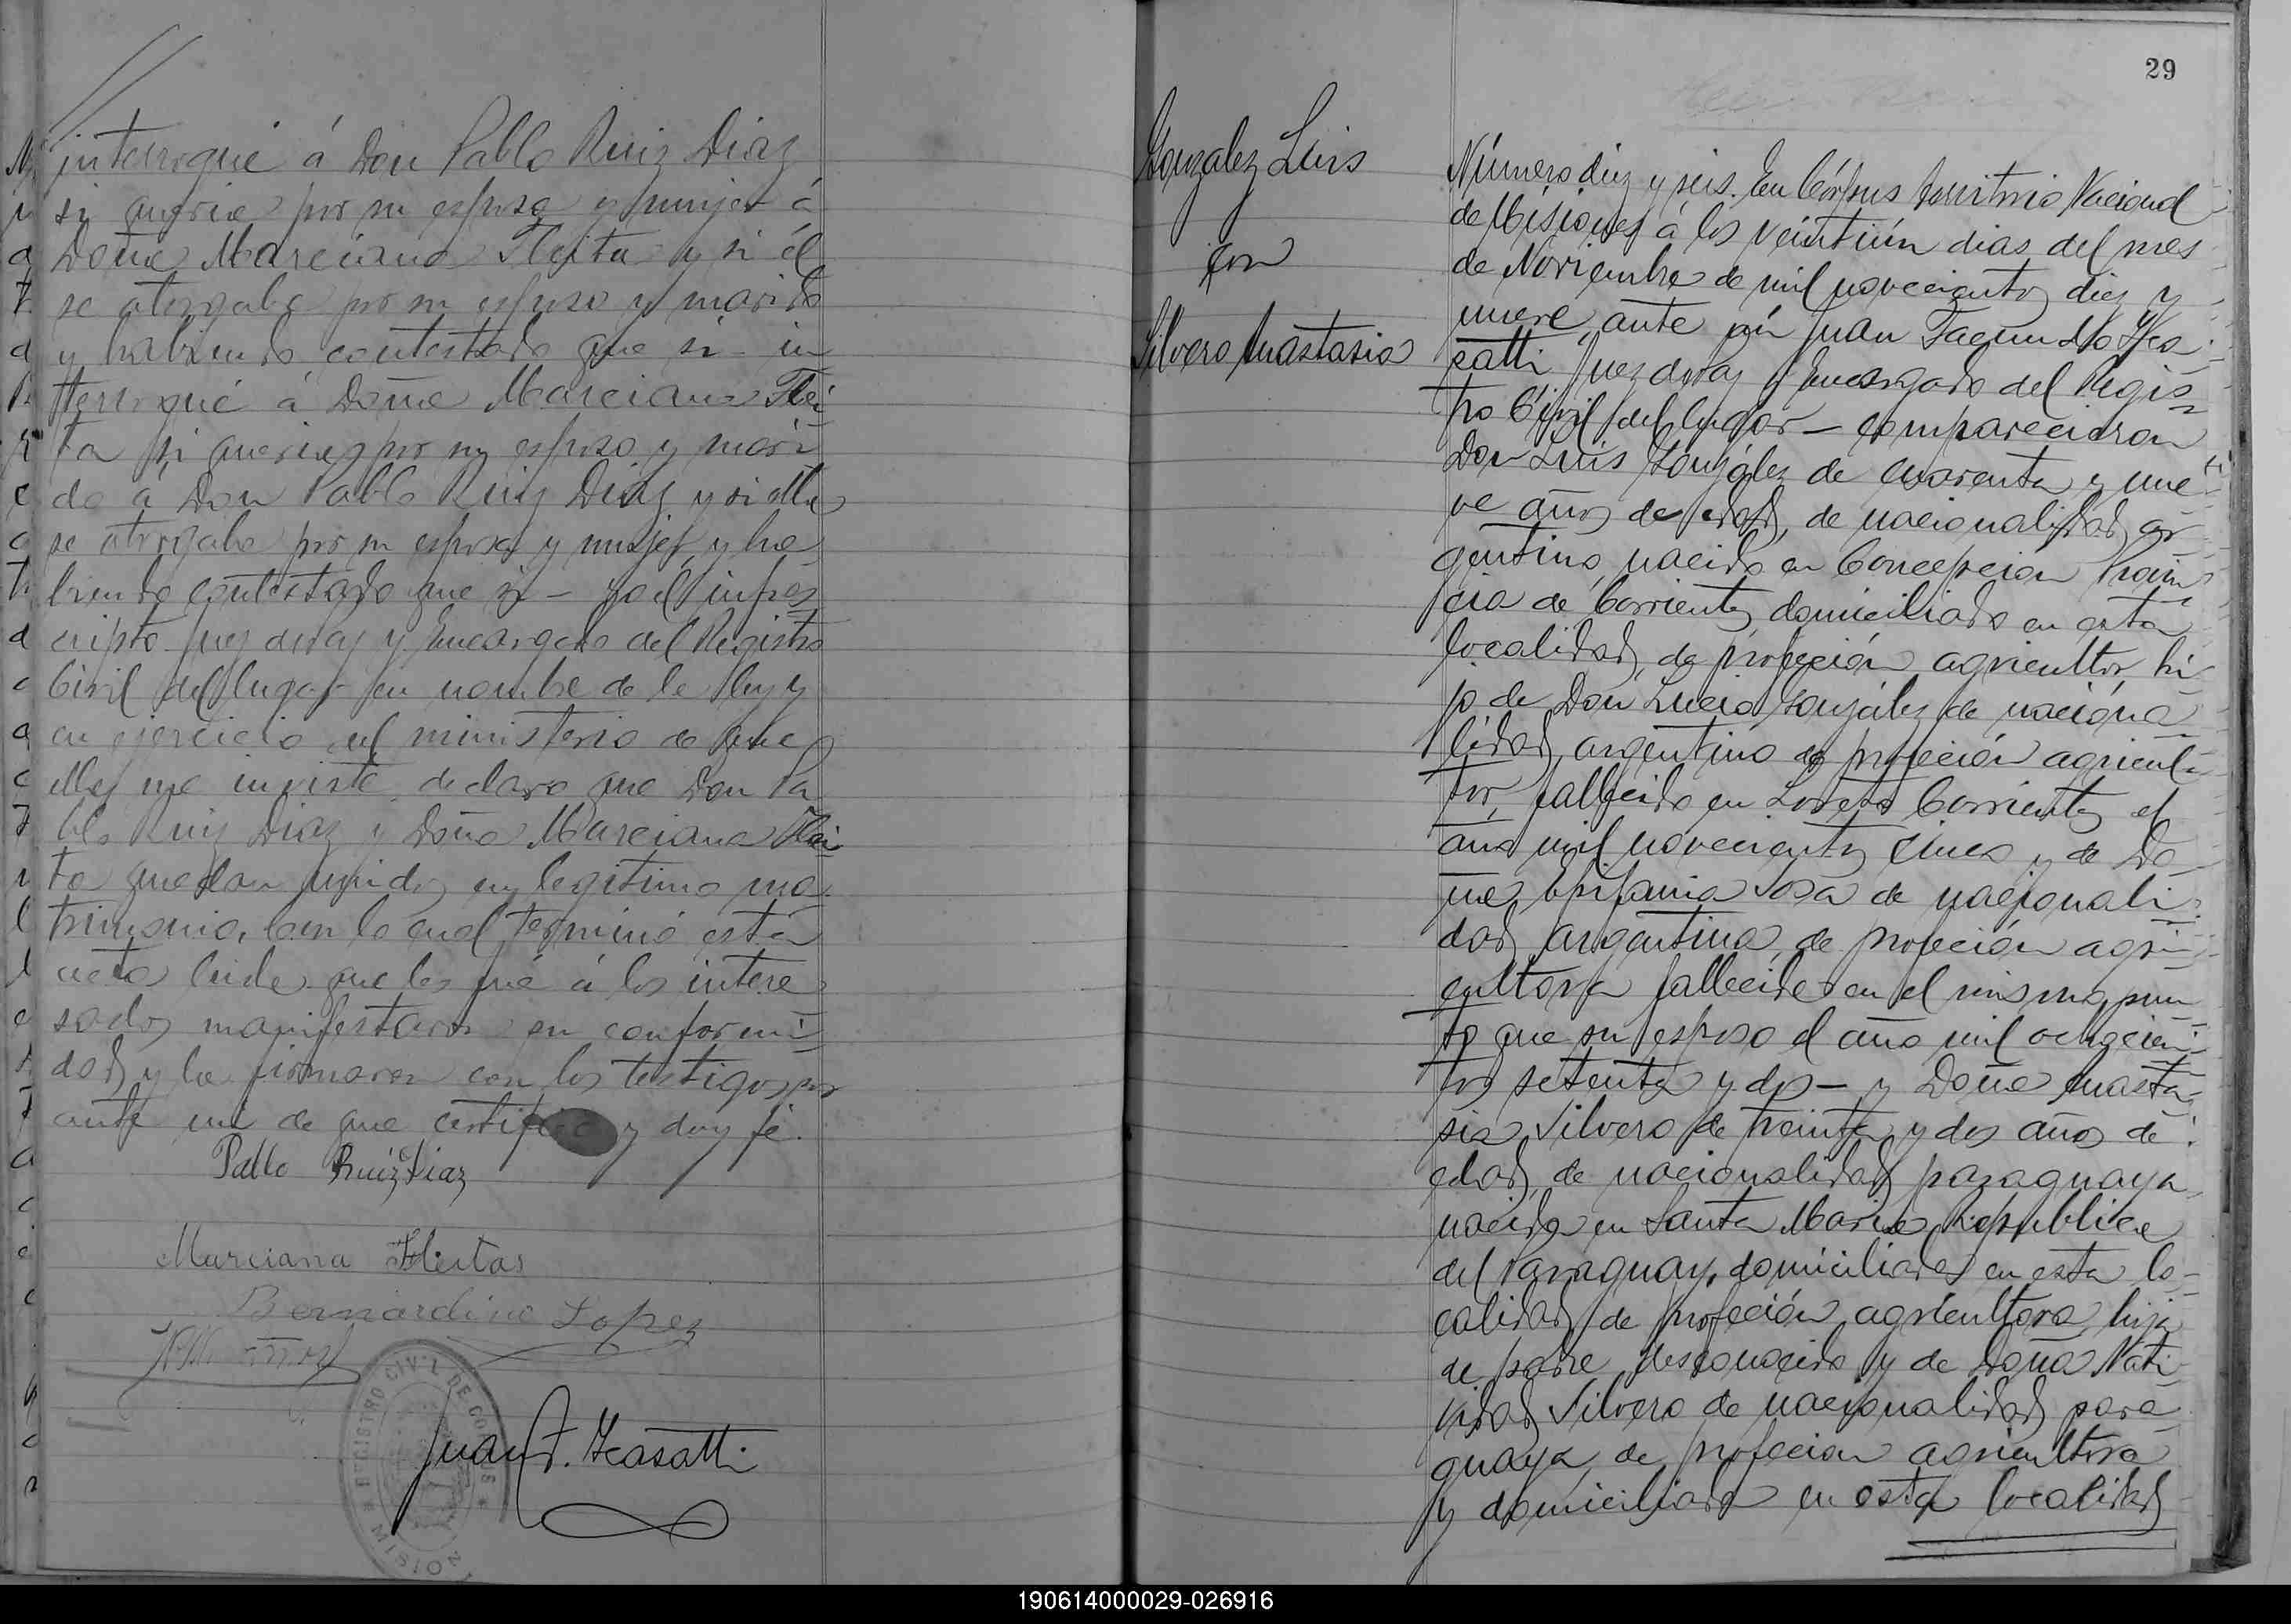 interrogué á Don Pablo Ruiz Diaz
si queria por su esposa y mujer á
Doña Marciana Fleita y si él
se otorgaba por su esposo y marido
y habiendo contestado que si - in
terrogué á Doña Marciana Flei
ta si queria por su esposo y mari
do á Don Pablo Ruiz Diaz y si ella
se otorgaba por su esposa y mujer y ha
biendo contestado que si - yo el infras
cripto Juez de Paz y Encargado del Registro
Civil del lugar en nombre de la ley y
en ejercicio del ministerio de que
ella me inviste declaro que Don Pa
blo Ruiz Diaz y Doña Marciana Flei
ta quedan unidos en legitimo ma
trimonio, con lo cual terminó esta
acta leida que les fué á los intere
sados manifestaron su conformi
dad y la firmaron con los testigos por
ante mi de que certifico y doy fé.
Pablo Ruiz Diaz
Marciana Fleitas
Bernardino Lopez
REGISTRO CIVIL DE CORPUS
MISION
Juan F. Hasatti
29
Gonzalez Luis
con
Silvero Anastasia
Número diez y seis. En Córpus territorio Nacional
de Misiones á los veintiún dias del mes
de Noviembre de mil novecientos diez y
nueve, ante mí Juan Facundo Ha
satti Juez de Paz y Encargado del Regis
tro Civil del lugar - comparecieron
Don Luis González de cuarenta y nue
ve años de edad, de nacionalidad ar
gentino, nacido en Concepción Provin
cia de Corrientes domiciliado en esta
localidad, de profeción agricultor, hi
jo de Don Lucio González de naciona
lidad argentino de profeción agricul
tor, fallecido en Loreto Corrientes el
año mil novecientos cinco y de Do
ña Epifania Sosa de nacionali
dad argentina, de profeción agri
cultora fallecida en el mismo pun
to que su esposo el año mil ochocien
tos setenta y dos - y Doña Anasta
sia Silvero de treinta y dos años de
edad, de nacionalidad paraguaya,
nacida en Santa Maria República
del Paraguay, domiciliada en esta lo
calidad, de profeción agricultora, hija
de padre desconocido y de Doña Nati
vidad Silvero de nacionalidad para
guaya, de profecion agricultora
y domiciliada en esta localidad
190614000029-026916